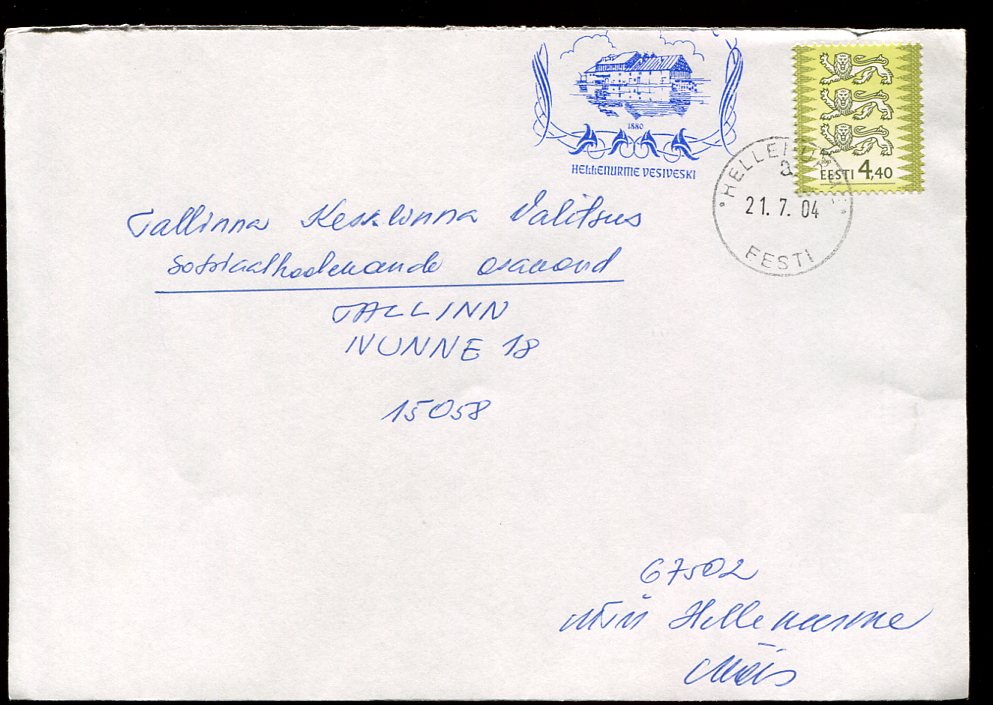 1880
HELLENURME VESIVESKI
EESTI 4,40
HELLENURME
21. 7. 04
EESTI
Tallinna Kesklinna Valitsus
Sotsiaalhoolekande osakond
TALLINN
NUNNE 18
15058
67502
Hellenurme
Mõis